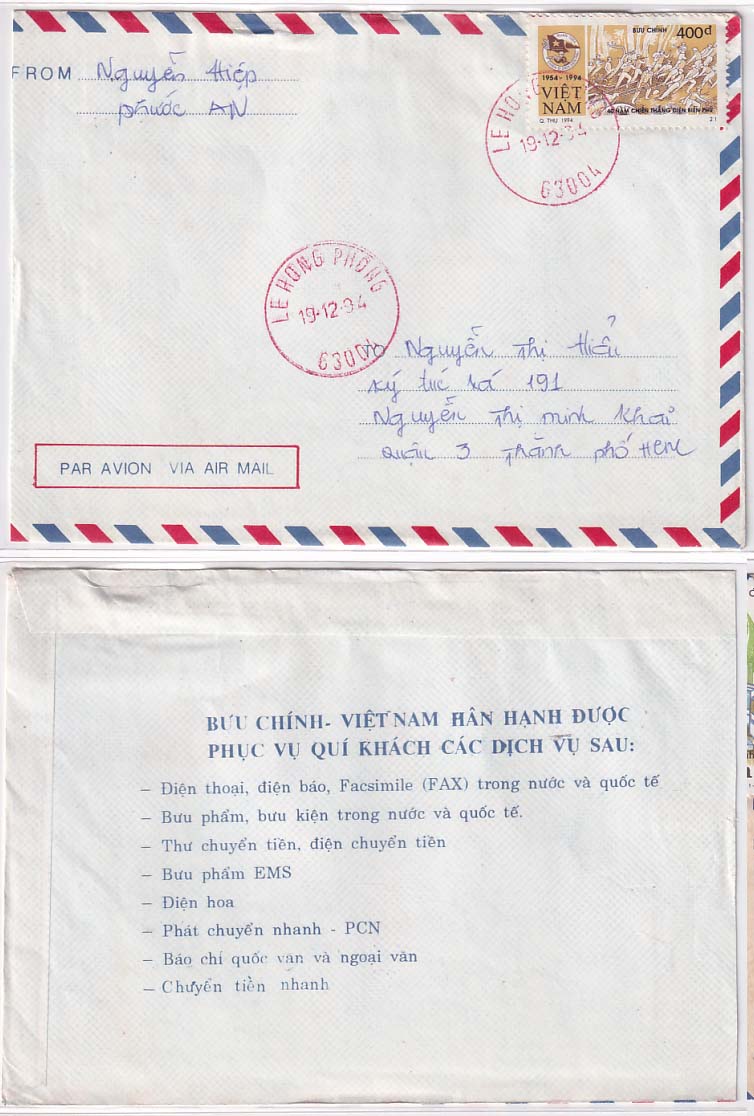 FROM Nguyễn Hiệp
Phước AN
BƯU CHÍNH 400đ
1954-1994
VIỆT
NAM
40 NĂM CHIẾN THẮNG ĐIỆN BIÊN PHỦ
Q. THU 1994 21
LE HONG
19-12-94
63004
LE HONG PHONG
19-12-94
63004
Nguyễn Thị Hiểu
Ký túc xá 191
Nguyễn Thị minh Khai
quận 3 Thành phố HCM
PAR AVION VIA AIR MAIL
BƯU CHÍNH- VIỆT NAM HÂN HẠNH ĐƯỢC
PHỤC VỤ QUÍ KHÁCH CÁC DỊCH VỤ SAU:
– Điện thoại, điện báo, Facsimile (FAX) trong nước và quốc tế
– Bưu phẩm, bưu kiện trong nước và quốc tế.
– Thư chuyển tiền, điện chuyển tiền
– Bưu phẩm EMS
– Điện hoa
– Phát chuyển nhanh - PCN
– Báo chí quốc văn và ngoại văn
– Chuyển tiền nhanh